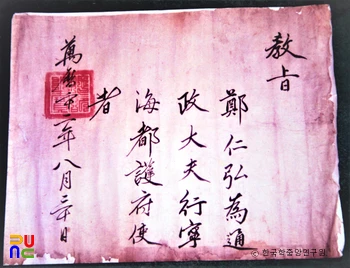 教旨
鄭仁弘為通
政大夫行寧
海都護府使
者
萬曆年八月日
© 한국학중앙연구원